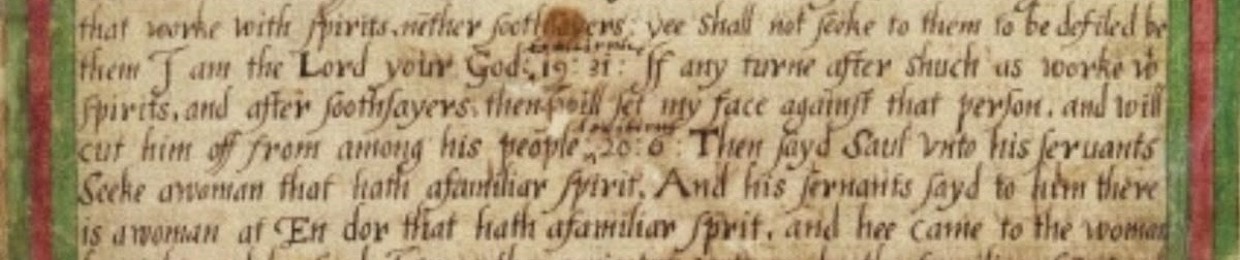 that worke with spirits, nether soothsayers: yee shall not seeke to them to be defiled be
them I am the Lord your God: 19: 31: If any turne after shuch as worke wt
spirits, and after soothsayers, then I will set my face against that person, and will
cut him off from among his people 20: 6: Then sayd Saul vnto his seruants
Seeke awoman that hath afamiliar spirit, And his seruants sayd to him there
is awoman at En dor that hath afamiliar sprit, and hee came to the woman